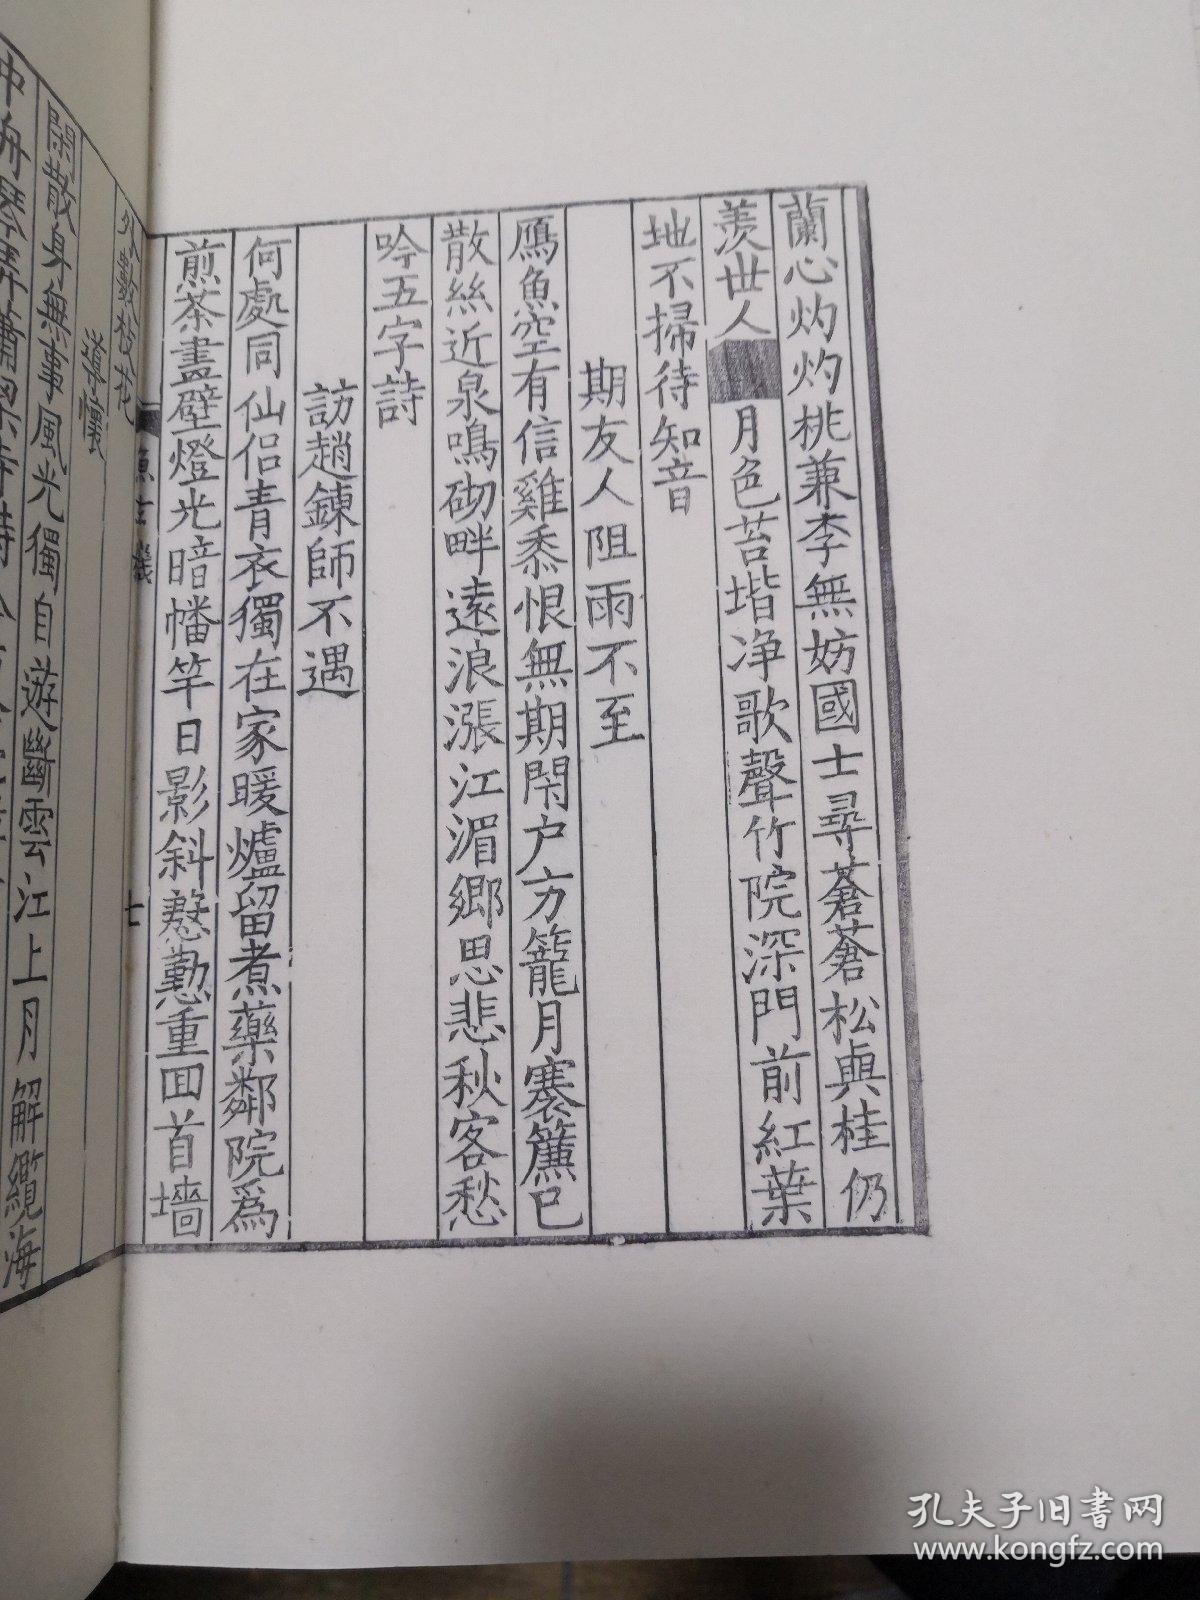 蘭心灼灼桃兼李無妨國士尋蒼蒼松與桂仍
羨世人月色苔堦净歌聲竹院深門前紅葉
地不掃待知音
期友人阻雨不至
鴈魚空有信雞黍恨無期閇户方籠月褰簾已
散絲近泉鳴砌畔遠浪漲江湄鄉思悲秋客愁
吟五字詩
訪趙鍊師不遇
何處同仙侣青衣獨在家暖爐留煮藥鄰院爲
煎茶畫壁燈光暗幡竿日影斜慇懃重回首墻
外數枝花
導懷
閑散身無事風光獨自遊斷雲江上月解纜海
中舟琴弄蕭梁寺詩
孔夫子旧书网
www.kongfz.com